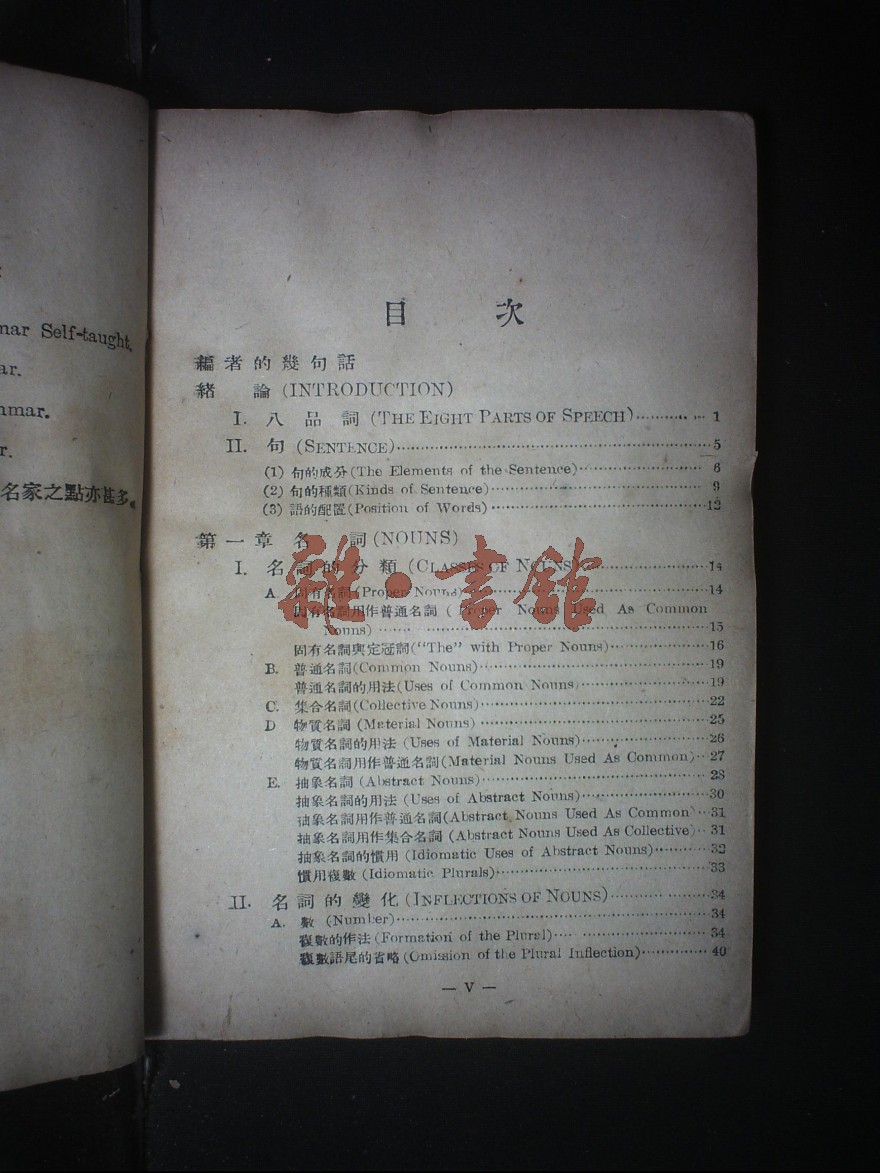 nar Self-taught.
ar.
nmar.
r.
名家之點亦甚多。
目 次
編者的幾句話
緒 論 (INTRODUCTION)
I. 八 品 詞 (THE EIGHT PARTS OF SPEECH)·········· 1
II. 句 (SENTENCE)··········5
(1) 句的成分 (The Elements of the Sentence)··········6
(2) 句的種類 (Kinds of Sentence)··········9
(3) 語的配置 (Position of Words)··········12
第一章 名 詞 (NOUNS)
I. 名詞的分類 (CLASSES OF NOUNS)··········14
A. 固有名詞 (Proper Nouns)··········14
固有名詞用作普通名詞 (Proper Nouns Used As Common
Nouns)··········15
固有名詞與定冠詞 ("The" with Proper Nouns)··········16
B. 普通名詞 (Common Nouns)··········19
普通名詞的用法 (Uses of Common Nouns)··········19
C. 集合名詞 (Collective Nouns)··········22
D 物質名詞 (Material Nouns)··········25
物質名詞的用法 (Uses of Material Nouns)··········26
物質名詞用作普通名詞 (Material Nouns Used As Common)··27
E. 抽象名詞 (Abstract Nouns)··········28
抽象名詞的用法 (Uses of Abstract Nouns)··········30
抽象名詞用作普通名詞 (Abstract Nouns Used As Common)··31
抽象名詞用作集合名詞 (Abstract Nouns Used As Collective)··31
抽象名詞的慣用 (Idiomatic Uses of Abstract Nouns)··········32
慣用複數 (Idiomatic Plurals)··········33
II. 名詞的變化 (INFLECTIONS OF NOUNS)··········34
A. 數 (Number)··········34
複數的作法 (Formation of the Plural)··········34
複數語尾的省略 (Omission of the Plural Inflection)··········40
— V —
雜·書館